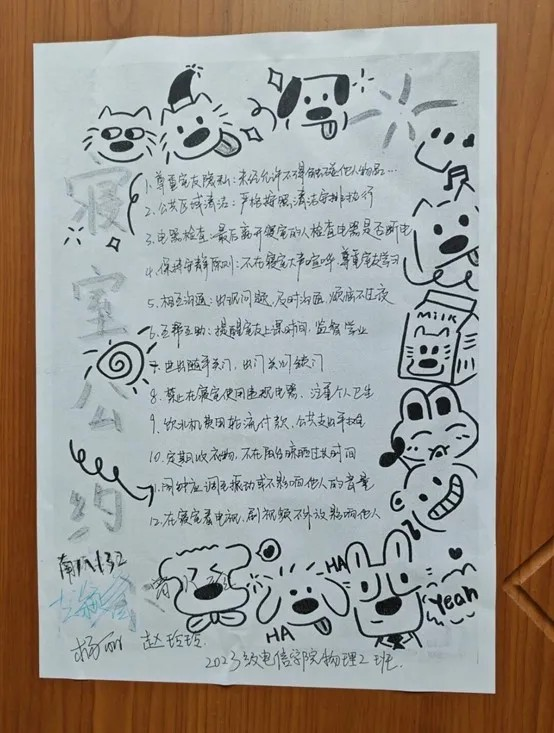 寝室公约
1.尊重室友隐私:未经允许不得触碰他人物品...
2.公共区域清洁:严格按照清洁安排执行
3.电器检查:最后离开寝室的人检查电器是否断电
4.保持安静原则:不在寝室大声喧哗,尊重室友学习
5.相互沟通:出现问题,及时沟通,烦恼不过夜
6.互帮互助:提醒室友上课时间,监督学业
7.进出随手关门,出门关灯锁门
8.禁止在寝室使用违规电器,注重个人卫生
9.饮水机费用轮流付款,公共支出平摊
10.定期收衣物,不在阳台晾晒过长时间
11.闹钟应调至振动或不影响他人的音量
12.在寝室看电视,刷视频不外放影响他人
MILK
HA
HA
Yeah
南八432
杨丽
赵玲玲
2023级电信学院物理2班.